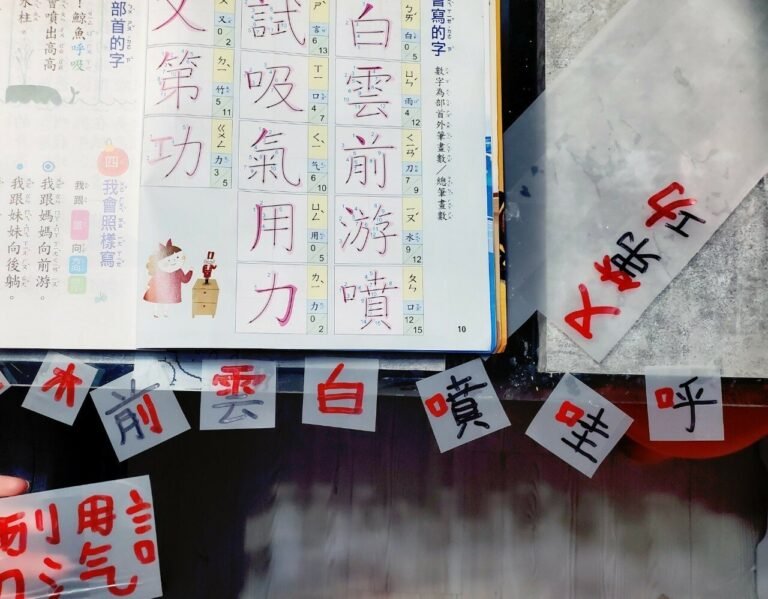 會寫的字
數字為部首外筆畫數／總筆畫數
白 白 0 5
雲 ㄩㄣˊ 雨 4 12
前 ㄑㄧㄢˊ 刀 7 9
游 ㄧㄡˊ 水 9 12
噴 ㄆㄣ 口 12 15
試 ㄕˋ 言 6 13
吸 ㄒㄧ 口 4 7
氣 ㄑㄧˋ 气 6 10
用 ㄩㄥˋ 用 0 5
力 ㄌㄧˋ 力 0 2
又 又 0 2
第 ㄉㄧˋ 竹 5 11
功 ㄍㄨㄥ 力 3 5
10
部首的字
！鯨魚呼吸
會噴出高高
水柱。
四
我會照樣寫
我跟 向
我跟媽媽向前游。
我跟妹妹向後躺。
又第功
前 雲 白 噴 哇 呼
言
用
气